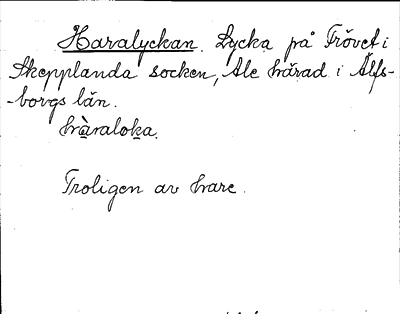 Haralyckan. Lycka på Frövet i
Skepplanda socken, Ale härad i Älfs-
-borgs län.
hàraloka.
Troligen av hare.